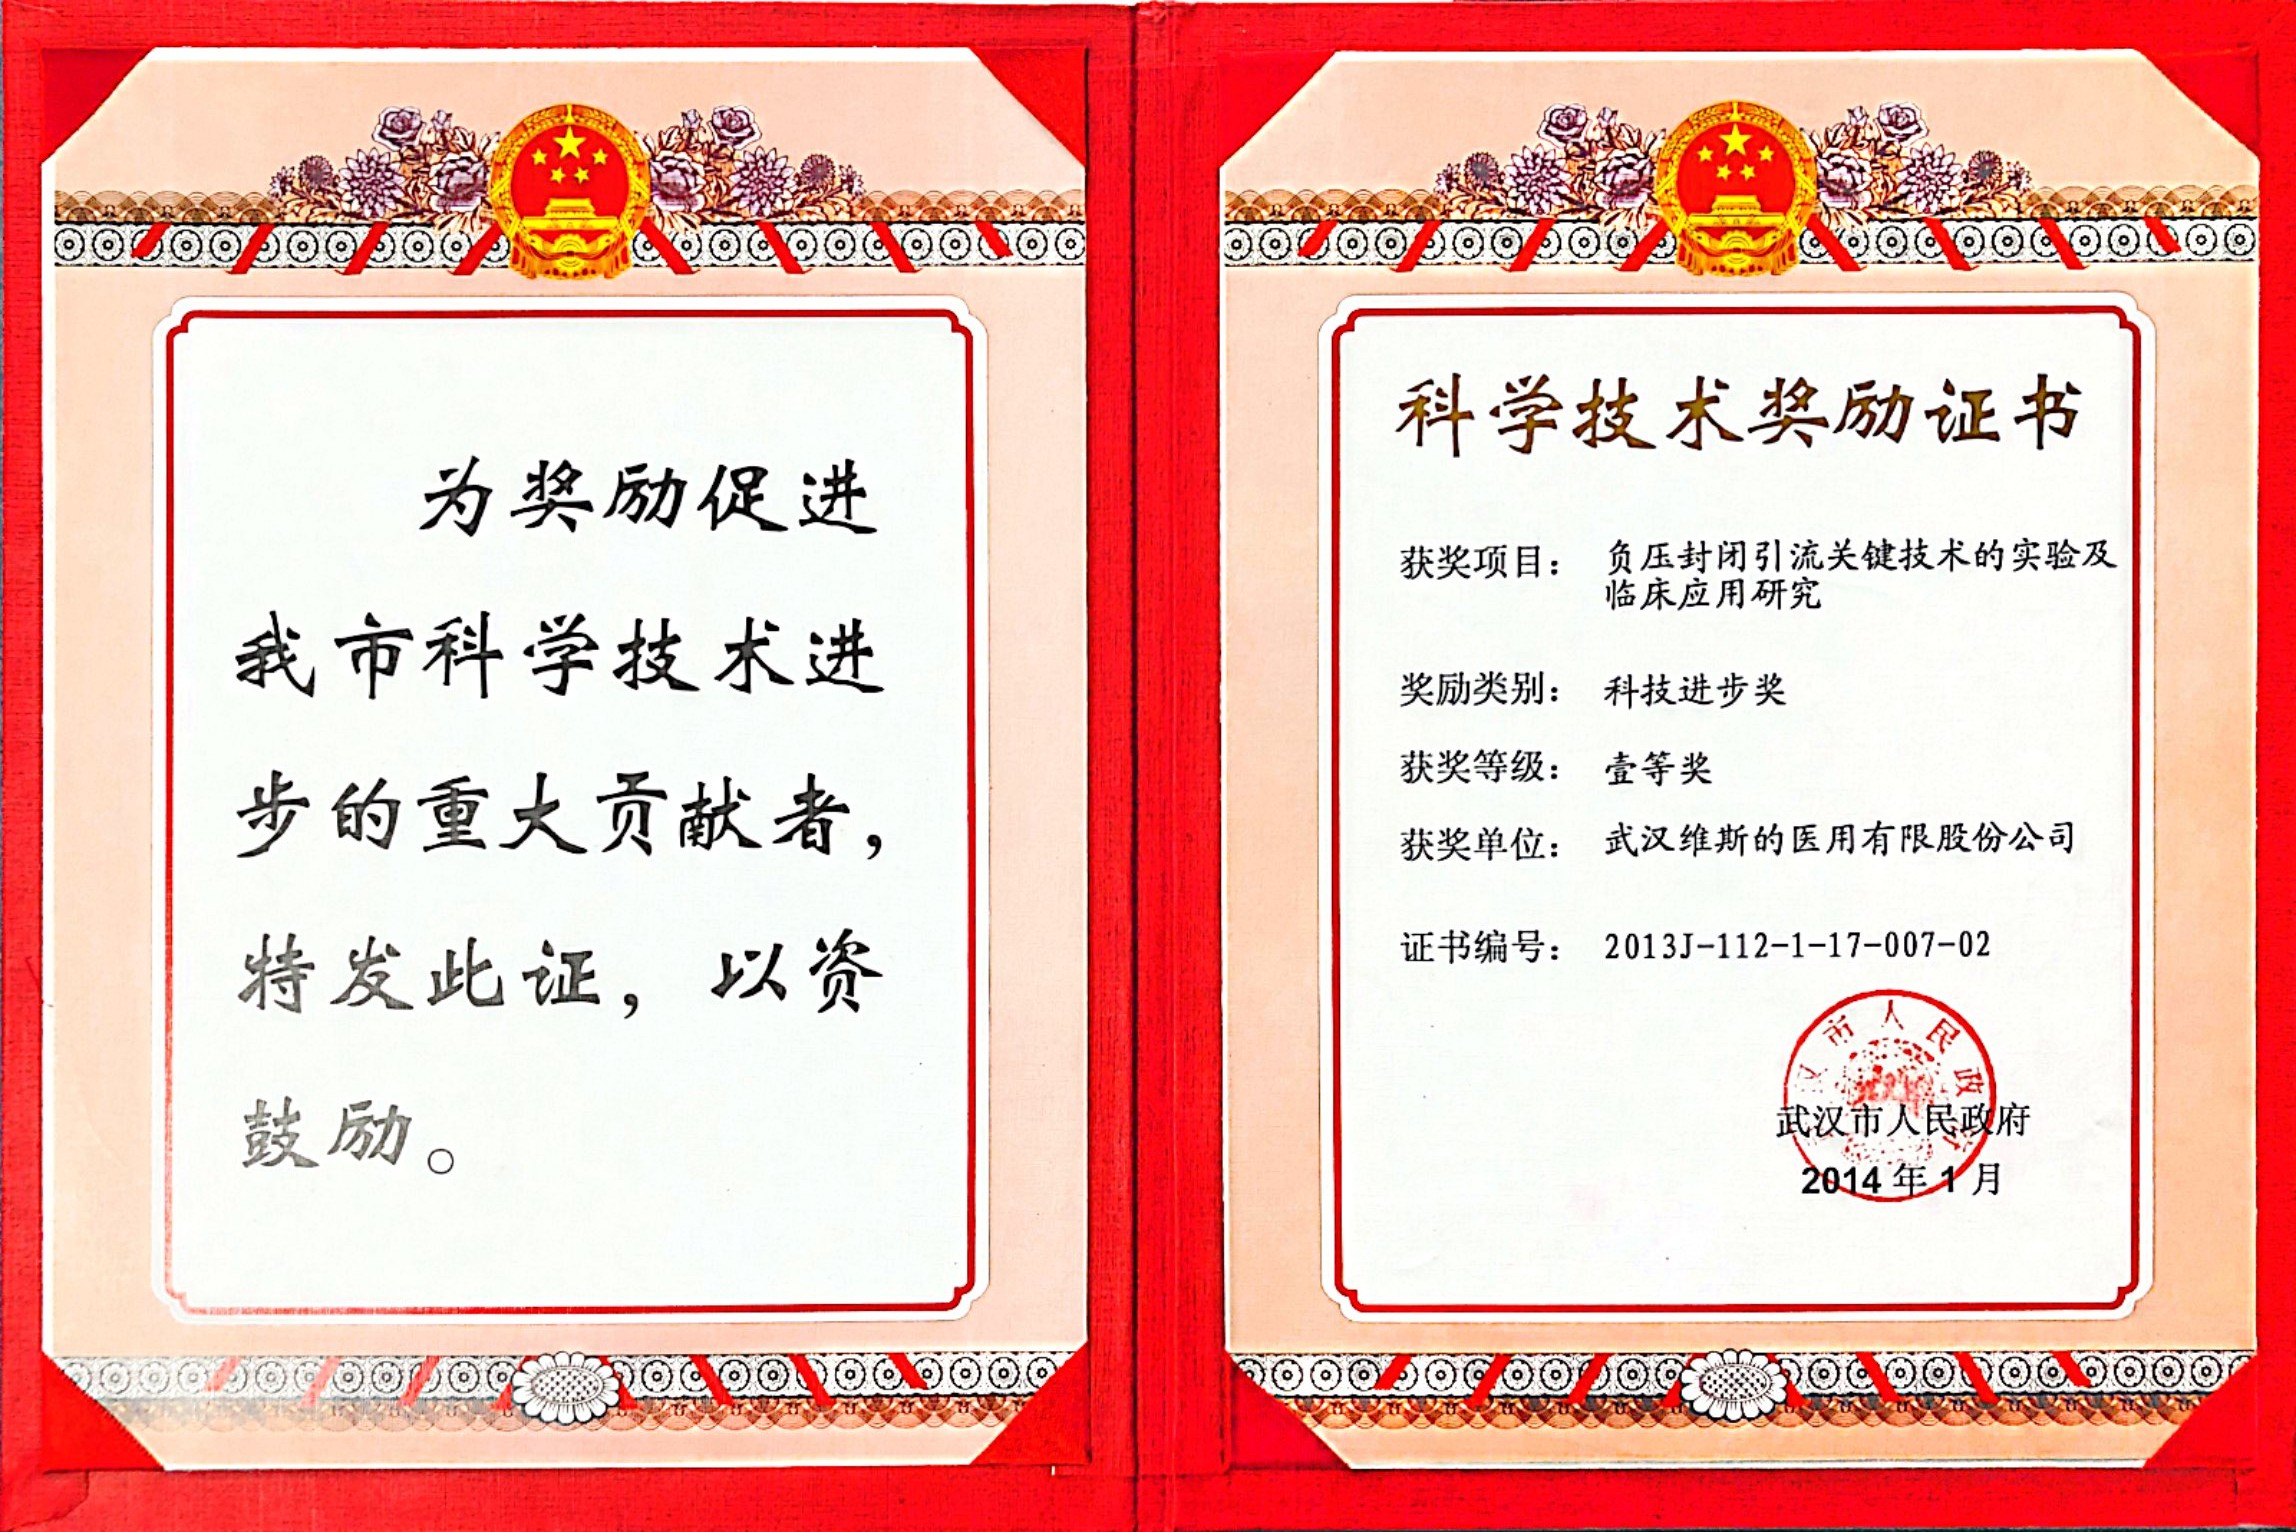 为奖励促进
我市科学技术进
步的重大贡献者，
特发此证，以资
鼓励。
科学技术奖励证书
获奖项目： 负压封闭引流关键技术的实验及
临床应用研究
奖励类别： 科技进步奖
获奖等级： 壹等奖
获奖单位： 武汉维斯的医用有限股份公司
证书编号： 2013J-112-1-17-007-02
汉市人民政
武汉市人民政府
2014 年 1 月